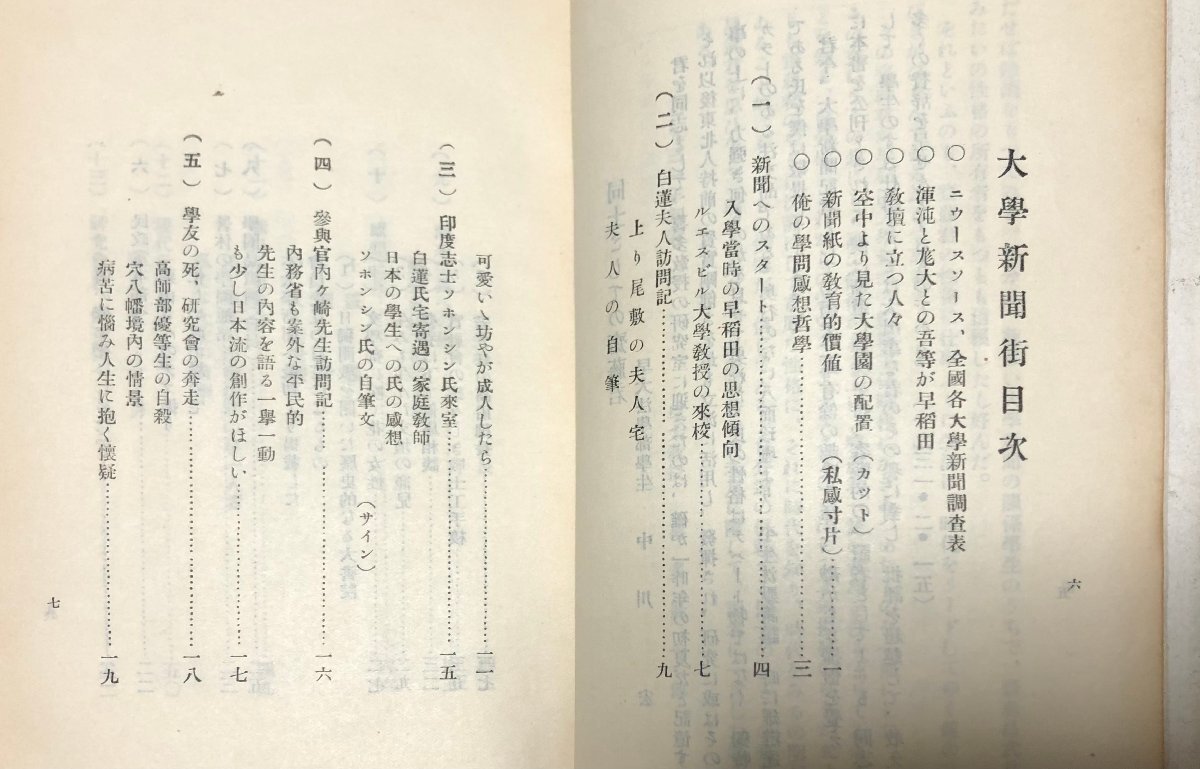 大學新聞街目次
○ ニウースソース、全國各大學新聞調査表
○ 渾沌と尨大との吾等が早稲田
○ 教壇に立つ人々
○ 空中より見た大學園の配置(カット)
新聞紙の教育的價値(私感寸片)…一
○ 俺の學問感想哲學…三
(一) 新聞へのスタート…四
入學當時の早稲田の思想傾向
ルエスビル大學教授の來校…七
(二) 白蓮夫人訪問記…九
上り尾敷の夫人宅
夫人の自筆
六
可愛いゝ坊やが成人したら…一一
(三) 印度志士ソホンシン氏來室…一五
白蓮氏宅寄遇の家庭教師
日本の學生への氏の感想
ソホンシン氏の自筆文(サイン)
(四) 參與官內ヶ崎先生訪問記…一六
內務省も案外な平民的
先生の內容を語る一擧一動
も少し日本流の創作がほしい…一七
(五) 學友の死、研究會の奔走…一八
高師部優等生の自殺
穴八幡境內の情景
病苦に惱み人生に抱く懷疑…一九
七